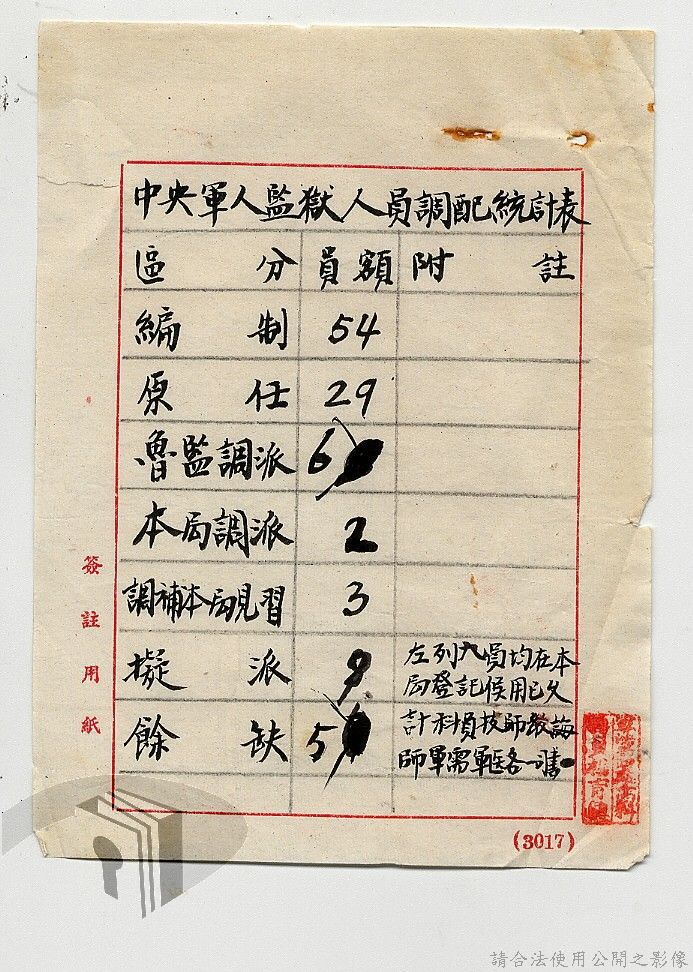 中央軍人監獄人員調配統計表
區分 員額 附註
編制 54
原任 29
魯監調派 6
本局調派 2
調補本局見習 3
擬派 9 左列九員均在本
局登記候用已久
餘缺 5 計科員技師教誨
師軍需軍医各一
簽註用紙
(3017)
請合法使用公開之影像